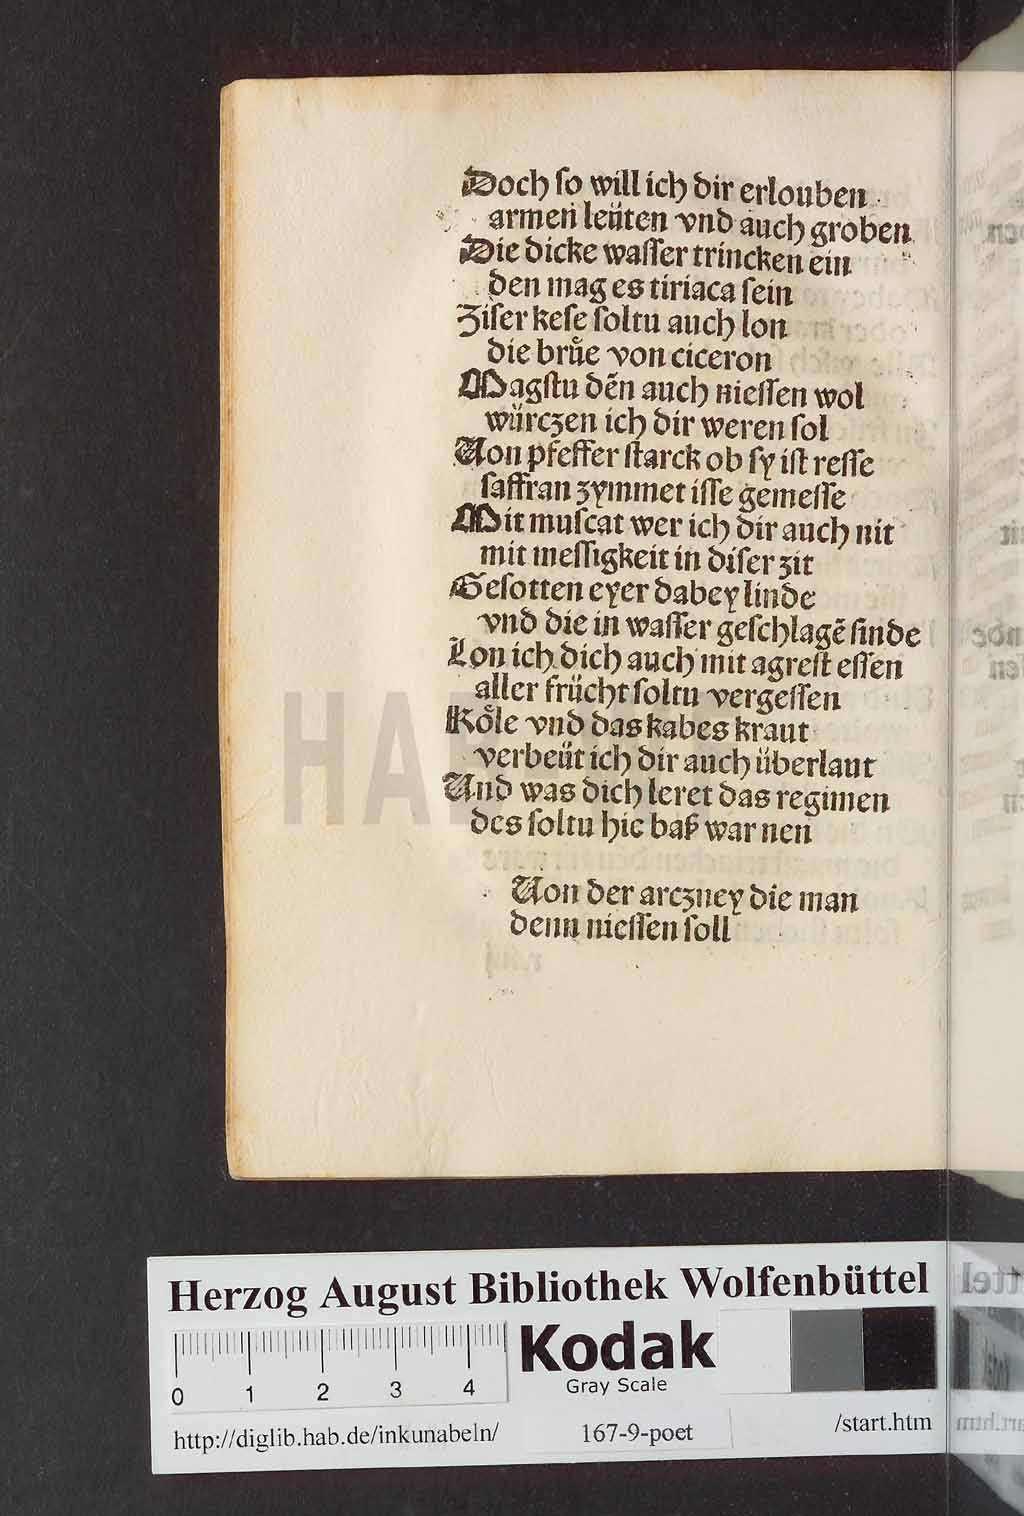 Doch ſo will ich dir erlouben
armen leüten vnd auch groben
Die dicke waſſer trincken ein
den mag es tiriaca ſein
Ziſer keſe ſoltu auch lon
die brůe von ciceron
Magſtu dēn auch nieſſen wol
würczen ich dir weren ſol
Von pfeffer ſtarck ob ſy iſt reſſe
ſaffran zymmet iſſe gemeſſe
Mit muſcat wer ich dir auch nit
mit meſſigkeit in diſer zit
Geſotten eyer dabey linde
vnd die in waſſer geſchlagē ſinde
Lon ich dich auch mit agreſt eſſen
aller frücht ſoltu vergeſſen
Koͤle vnd das kabes kraut
verbeüt ich dir auch überlaut
Und was dich leret das regimen
des ſoltu hie baß war nen
Von der arczney die man
denn nieſſen ſoll
HAB
Herzog August Bibliothek Wolfenbüttel
0 1 2 3 4
Kodak
Gray Scale
http://diglib.hab.de/inkunabeln/ 167-9-poet /start.htm